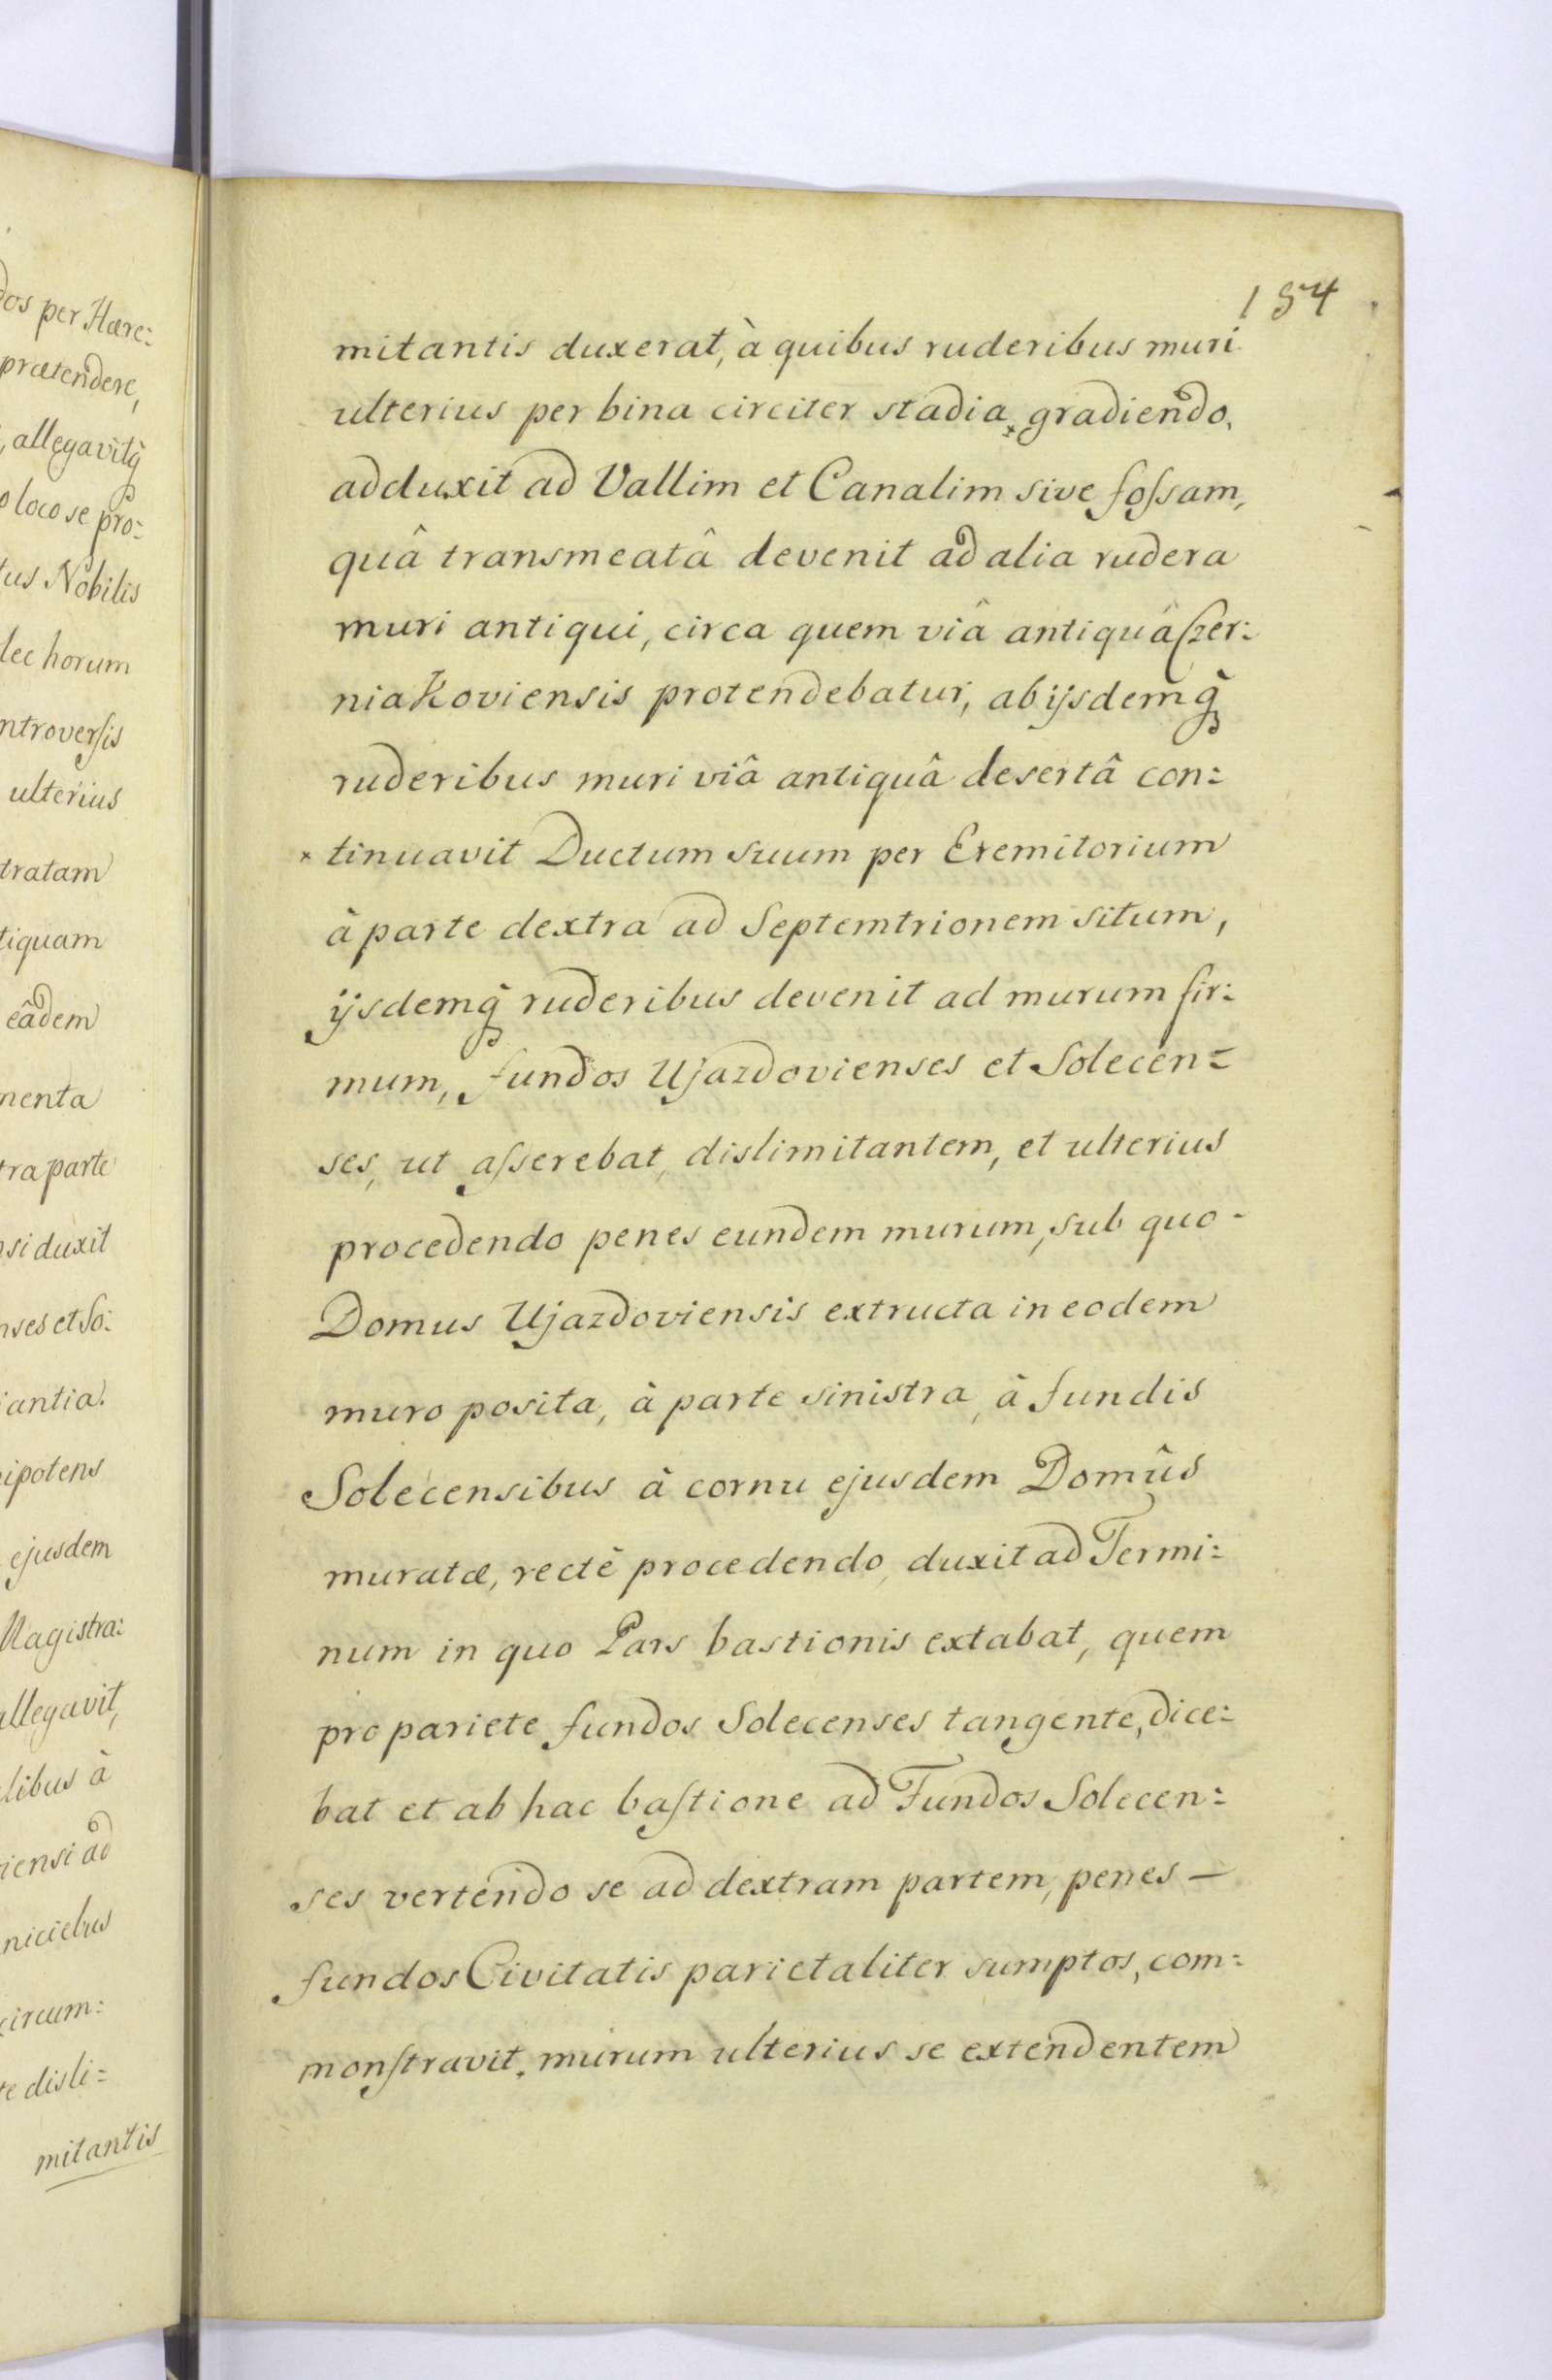 dos per Hære:
prætendere,
allegavitq́
loco se pro:
tus Nobilis
horum
ntroversis
ulterius
tratam
tiquam
eâdem
menta
tra parte
si duxit
nses et So:
iantia.
ipotens
ejusdem
Magistra:
allegavit,
libus à
iensi ad
niciebus
circum:
te disli=
mitantis
154
mitantis duxerat, à quibus ruderibus muri
ulterius per bina circiter stadia gradiendo,
adduxit ad Vallim et Canalim sive fossam,
quâ transmeatâ devenit ad alia rudera
muri antiqui, circa quem viâ antiquâ Czer:
niakoviensis protendebatur, ab ijsdemq́
ruderibus muri viâ antiquâ desertâ con:
tinuavit Ductum suum per Eremitorium
à parte dextra ad Septemtrionem situm,
ijsdemq́ ruderibus devenit ad murum fir:
mum, fundos Ujazdovienses et Solecen=
ses, ut asserebat, dislimitantem, et ulterius
procedendo penes eundem murum, sub quo -
Domus Ujazdoviensis extructa in eodem
muro posita, à parte sinistra, à fundis
Solecensibus à cornu ejusdem Domûs
muratæ, rectè procedendo, duxit ad Termi:
num in quo Pars bastionis extabat, quem
pro pariete fundos Solecenses tangente, dice:
bat et ab hac bastione ad Fundos Solecen:
ses vertendo se ad dextram partem, penes —
fundos Civitatis parietaliter sumptos, com:
monstravit. murum ulterius se extendentem